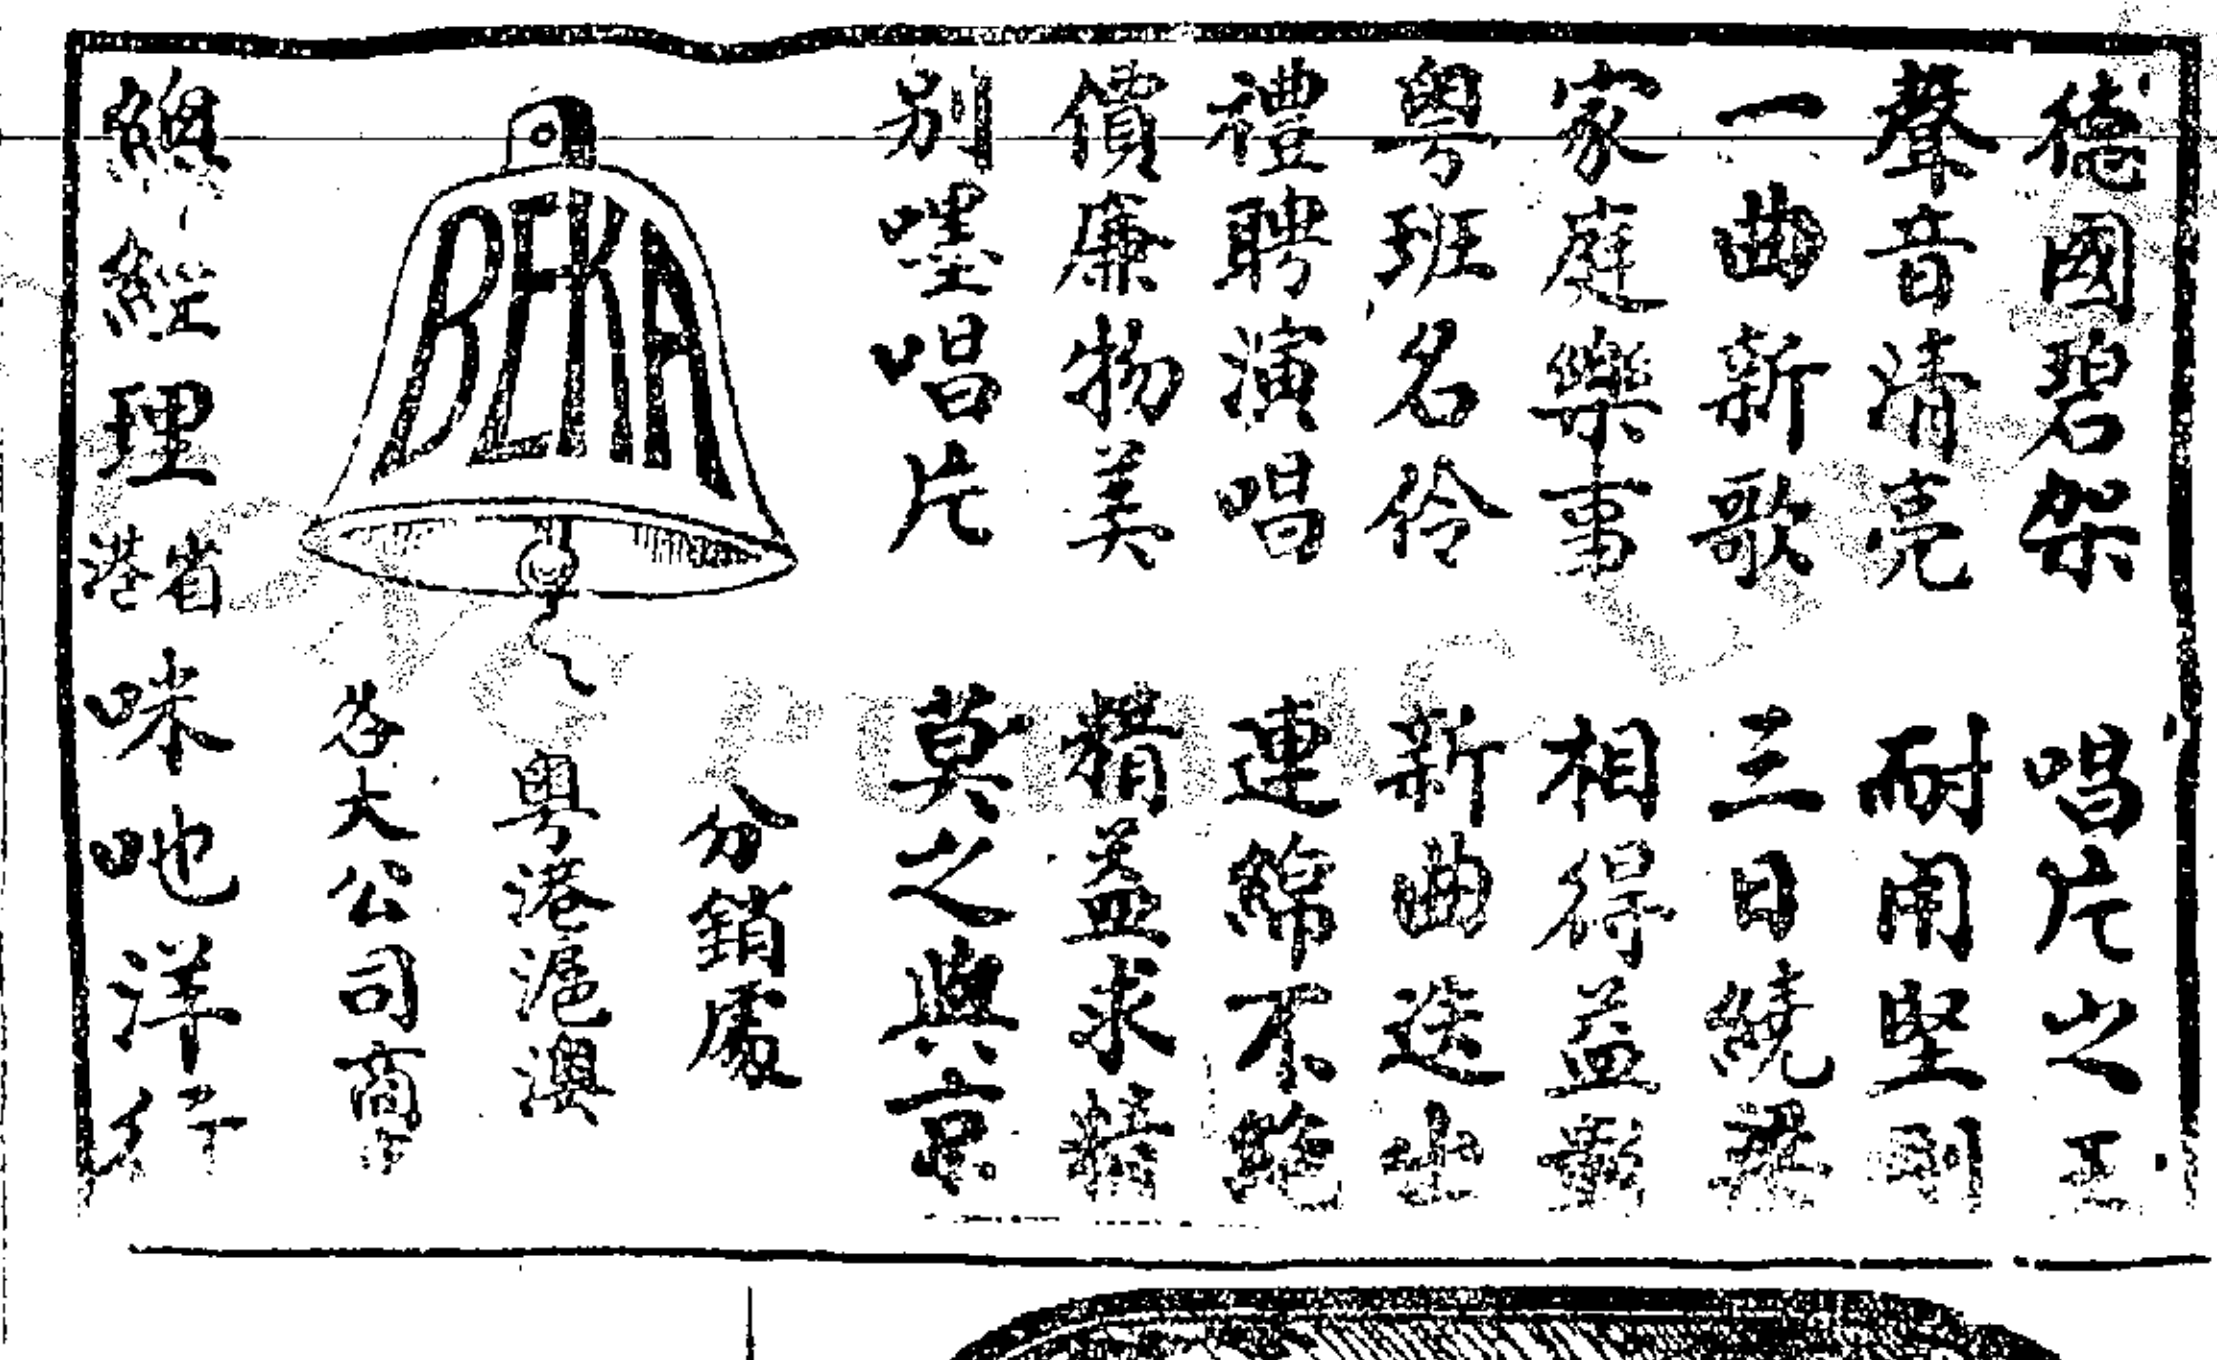 德國碧架 唱片之王
聲音清亮 耐用堅剛
一曲新歌 三日繞梁
家庭樂事 相得益彰
粵班名伶 新曲迭出
禮聘演唱 連綿不絕
價廉物美 精益求精
別嘿唱片 莫之與京
BEKA
分銷處
粵港滬澳
各大公司商店
總經理省港咪吔洋行